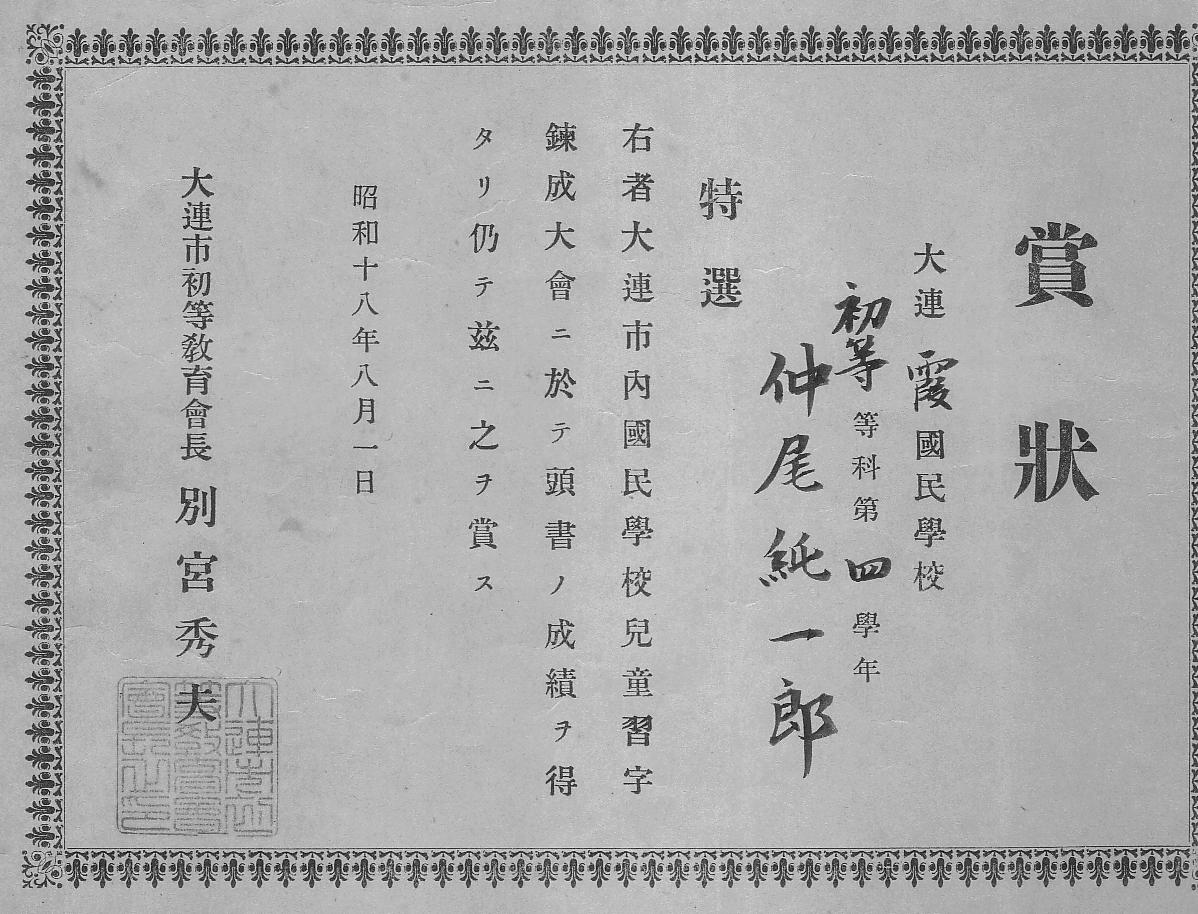 賞狀
大連霞國民學校
初等等科第四學年
仲尾純一郎
特選
右者大連市內國民學校兒童習字
鍊成大會ニ於テ頭書ノ成績ヲ得
タリ仍テ玆ニ之ヲ賞ス
昭和十八年八月一日
大連市初等敎育會長 別宮秀夫